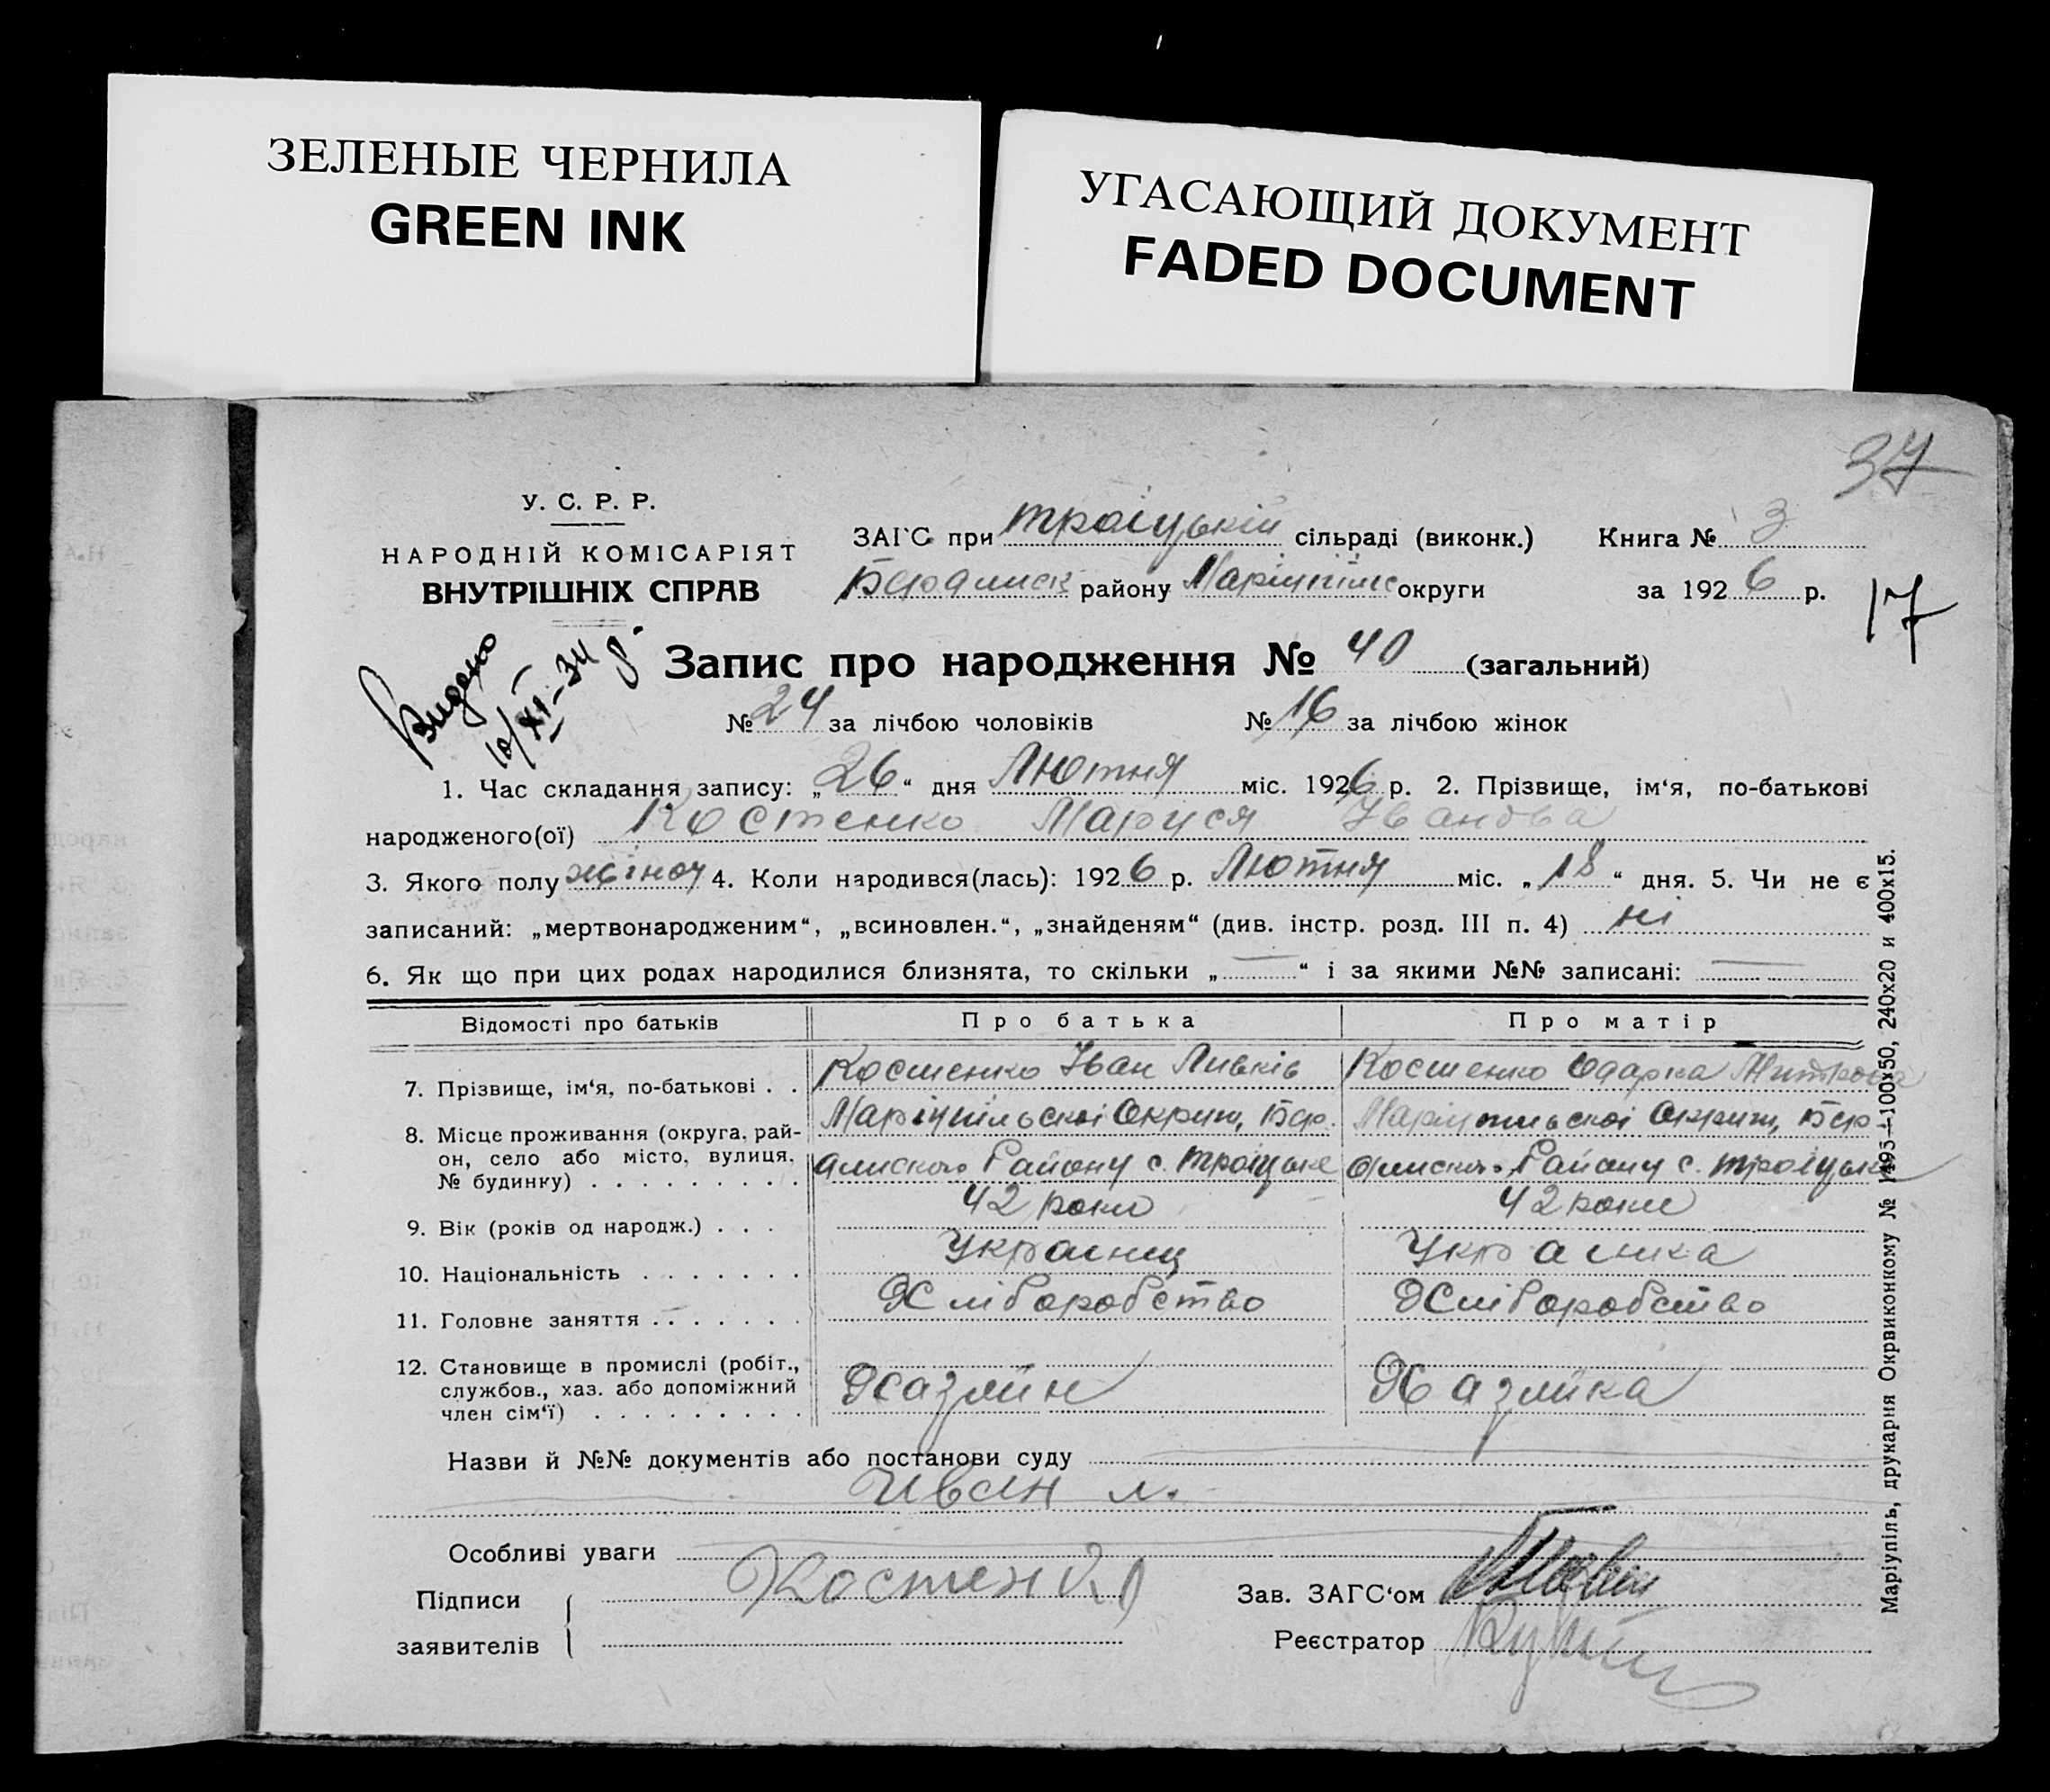 ЗЕЛЕНЫЕ ЧЕРНИЛА
GREEN INK
УГАСАЮЩИЙ ДОКУМЕНТ
FADED DOCUMENT
37
У. С. Р. Р.
НАРОДНІЙ КОМІСАРІЯТ
ВНУТРІШНІХ СПРАВ
ЗАГС при Троіцькій сільраді (виконк.) Книга № 3
району Маріупільс округи за 1926 р.
17
Видано
10/XI-34 р.
Запис про народження № 40 (загальний)
№ 24 за лічбою чоловіків № 16 за лічбою жінок
1. Час складання запису: „26“ дня Лютня міс. 1926 р. 2. Прізвище, ім‘я, по-батькові
народженого(ої) Костенко Маруся Іванова
3. Якого полу жіноч 4. Коли народився(лась): 1926 р. Лютня міс. „18“ дня. 5. Чи не є
записаний: „мертвонародженим“, „всиновлен.“, „знайденям“ (див. інстр. розд. III п. 4) ні
6. Як що при цих родах народилися близнята, то скільки „—“ і за якими №№ записані: —
Відомості про батьків Про батька Про матір
7. Прізвище, ім‘я, по-батькові . . Костенко Іван Костенко Одарка
8. Місце проживання (округа, рай-
он, село або місто, вулиця,
№ будинку) . . . . . . . . .
Маріупільскоі Округи, Бер- Маріупільскоі Округи, Бер-
дянского Району с. Троіцьке дянского Району с. Троіцьке
9. Вік (років од народж.) . . . 42 роки 42 роки
10. Національність . . . . . . . Украинец Украинка
11. Головне заняття . . . . . . . Хліборобство Хліборобство
12. Становище в промислі (робіт.,
службов., хаз. або допоміжний
член сім‘ї) . . . . . . . . .
Хазяїн Хазяйка
Назви й №№ документів або постанови суду
Иван л.
Особливі уваги
Підписи
заявителів
Костенко
Зав. ЗАГС‘ом
Реєстратор
Маріупіль, друкарня Окрвиконкому № 1493—100х50, 240х20 и 400х15.